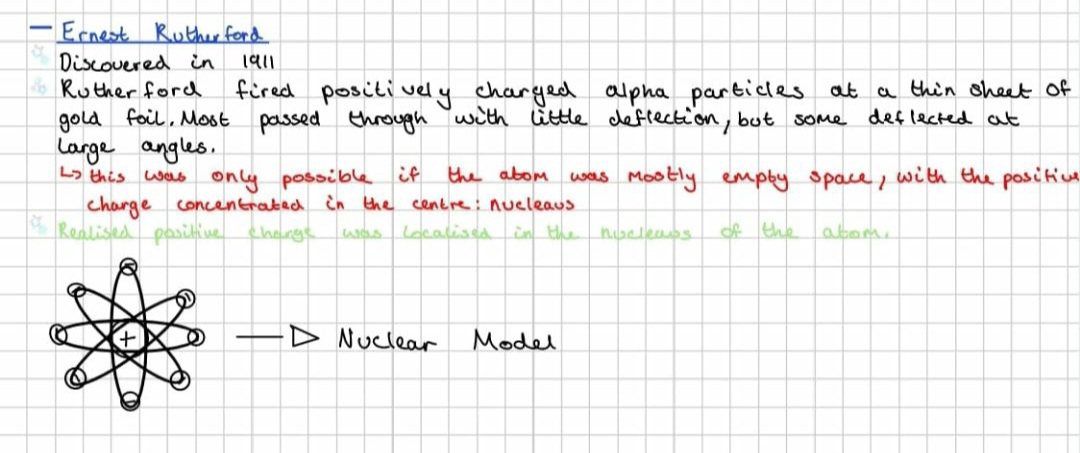 — Ernest Rutherford
Discovered in 1911
Rutherford fired positively charged alpha particles at a thin sheet of
gold foil. Most passed through with little deflection, but some deflected at
large angles.
↳ this was only possible if the atom was mostly empty space, with the positive
charge concentrated in the centre: nucleaus
Realised positive charge was localised in the nucleaus of the atom.
+ —▷ Nuclear Model